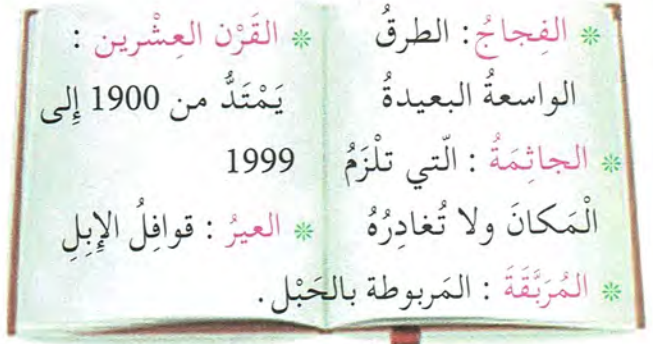 ❊ الفِجاجُ : الطرقُ
الواسعةُ البعيدةُ
❊ الجاثِمَةُ : الّتي تلْزَمُ
الْمَكانَ ولا تُغادِرُهُ
❊ المُرَبَّقَةَ : المَربوطة بالحَبْل.
❊ القَرْن العِشْرين :
يَمْتَدُّ من 1900 إِلى
1999
❊ العيرُ : قوافِلُ الإِبِلِ